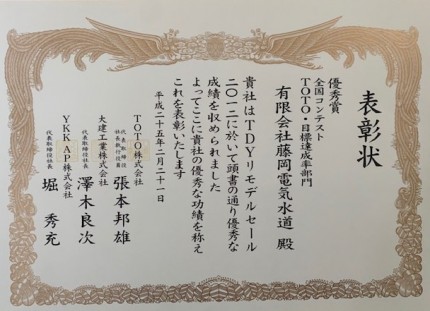 表彰状
優秀賞
全国コンテスト
TOTO・目標達成率部門
有限会社藤岡電気水道 殿
貴社はTDYリモデルセール
二〇一二に於いて頭書の通り優秀な
成績を収められました
よってここに貴社の優秀な功績を称え
これを表彰いたします
平成二十五年二月二十一日
TOTO株式会社
代表取締役
社長執行役員
張本邦雄
大建工業株式会社
代表取締役社長
澤木良次
YKK AP株式会社
代表取締役社長
堀 秀充